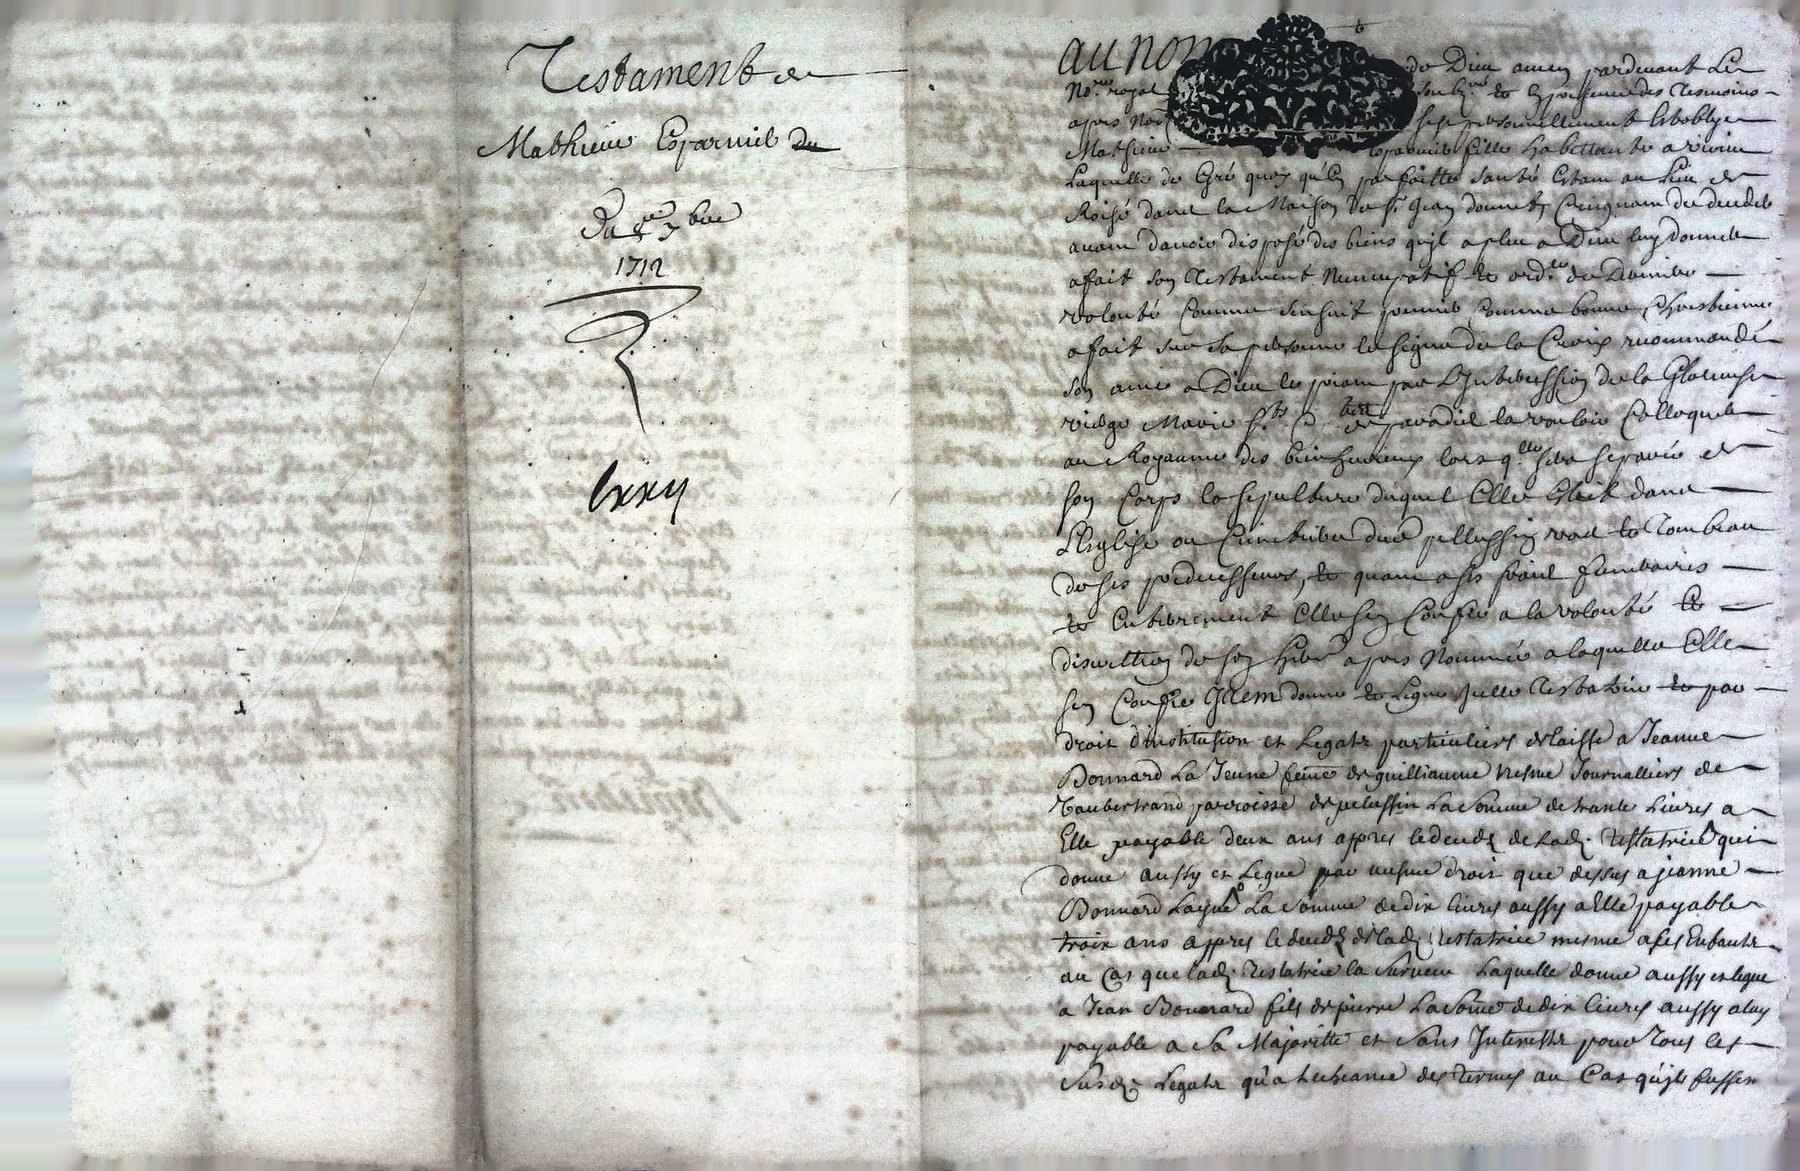 Testament de
Mathieue Esparvié du
Du 7bre
1712
Lxxij
au nom de Dieu amen pardevant Le
No.re royal soubz.né et en presence des tesmoins
apres nom
Mathieue Esparvié fille habitante a
Laquelle de gré quoy qu'en parfaitte santé Estant au Lieu de
Roisé dans la Maison de Sr Jean donnet, Craignant de deceder
avant davoir disposé des biens qu'il a pleu a Dieu luy donner
a fait son testament nuncupatif et ord.re de Derniere
volonté Comme sensuit premier Comme bonne Chrestienne
a fait sur sa personne le signe de la Croix recommandé
son ame a Dieu le priant par L'Intercession de la Glorieuse
vierge Marie de paradis la vouloir Colloquer
au Royaume des bienheureux lors q.lle sera separée de
son Corps la sepulture duquel Elle Eslit dans
L'Eglise ou Cimetiere dud pellussin vas et Tombeau
de ses predecesseurs, et quant a ses frais funeraires
et Enterrement Elle sen Confie a la volonté et
discretion de son heire apres Nommée a laquelle Elle
sen Confie Item donne et Legue Jcelle Testatrice et par
droit d'institution et Legatz particuliers delaisse a Jeanne
Bonnard La Jeune feme de guilliaume nesme Journalliers de
Taubertrand parroisse de pelussin La Somme de trante Livres a
Elle payable deux ans appres le decedz de Lad. testatrice qui
donne aussy et Legue par mesme droit que dessus a jeanne
Bonnard Laynée La Somme de dix livres aussy a Elle payable
trois ans appres le decedz de lad. testatrice mesme a ses Enfantz
au Cas que lad. testatrice la Survive Laquelle donne aussy et legue
a Jean Bonnard fils de pierre La Some de dix livres aussy a luy
payable a Sa Majoritté et sans Interestz pour Tous les
Susd. Legatz qu'a Lescheance des termes au Cas qu'jls fussen